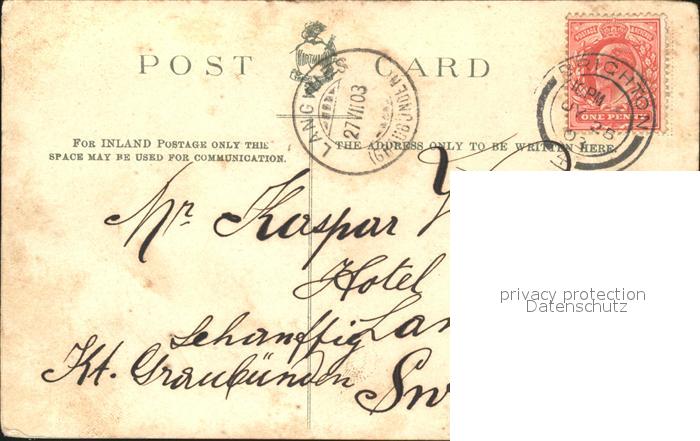 POST CARD
POSTAGE REVENUE
ONE PENNY
BRIGHTON
LANGWIES
27 VII 03
(GRAUBÜNDEN)
FOR INLAND POSTAGE ONLY THIS
SPACE MAY BE USED FOR COMMUNICATION.
THE ADDRESS ONLY TO BE WRITTEN HERE.
Mr. Kaspar
Hotel
Schanffig Lan
Kt. Graubünden
Sw
privacy protection
Datenschutz